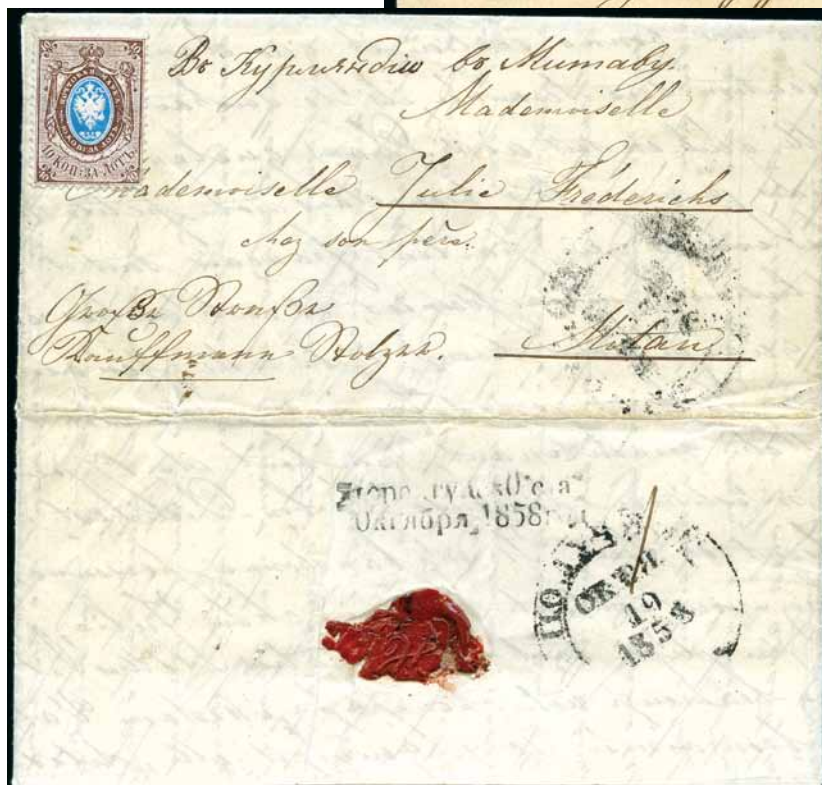 10 КОП: ЗА ЛОТЪ.
Въ Курляндію въ Митаву.
Mademoiselle
Mademoiselle Julie Fréderichs
chez son père.
Große Straße
Kauffmann Stolzer.
Mitau
Октября 1858
ПОЛУЧЕНО
ОКТЯ
19
1858